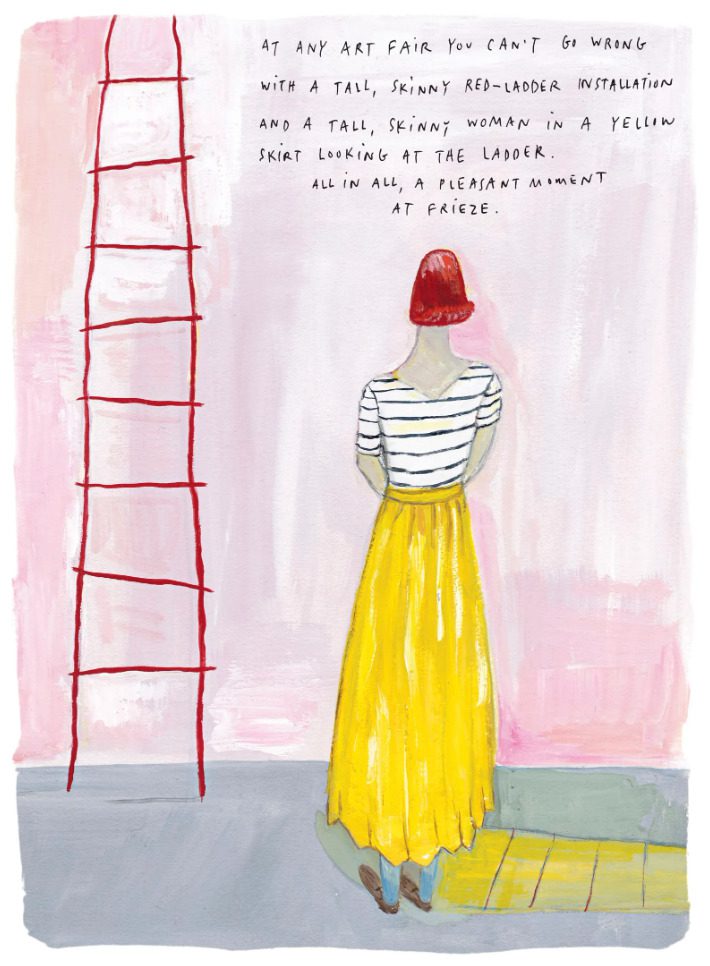 AT ANY ART FAIR YOU CAN'T GO WRONG
WITH A TALL, SKINNY RED-LADDER INSTALLATION
AND A TALL, SKINNY WOMAN IN A YELLOW
SKIRT LOOKING AT THE LADDER.
ALL IN ALL, A PLEASANT MOMENT
AT FRIEZE.